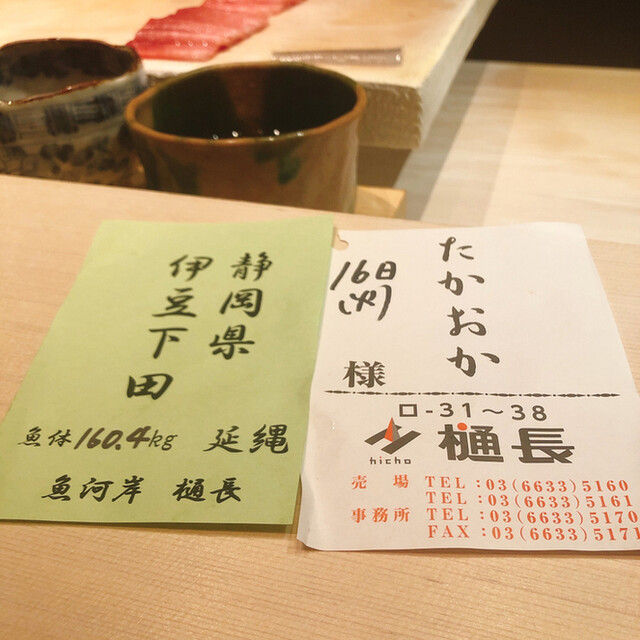 静岡県
伊豆下田
魚体160.4kg 延縄
魚河岸 樋長
たかおか
16日
(火)
様
ロ-31〜38
hicho
樋長
売場 TEL:03(6633)5160
TEL:03(6633)5161
事務所 TEL:03(6633)5170
FAX:03(6633)5171